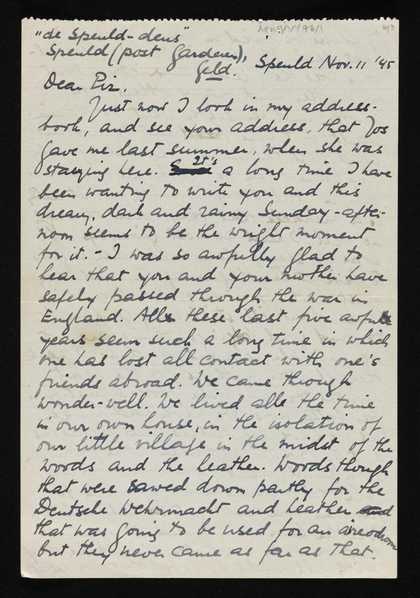 "de Speuld-deus"
Speuld (post Garderen),
Geld. Speuld Nov. 11 '45
Dear Piz.
Just now I look in my address-
book, and see your address, that Jos
gave me last summer, when she was
staying here. It's a long time I have
been wanting to write you and this
dreary, dark and rainy Sunday-after-
noon seems to be the wright moment
for it. - I was so awfully glad to
hear that you and your mother have
safely passed through the war in
England. Alle these last five awfulle
years seem such a long time in which
one has lost all contact with one's
friends abroad. We came through
wonder-well. We lived alle the time
in our own house, in the isolation of
our little village in the midst of the
woods and the heather. Woods though
that were sawed down partly for the
Deutsche Wehrmacht and heather
that was going to be used for an areodrom
but they never came as far as that.